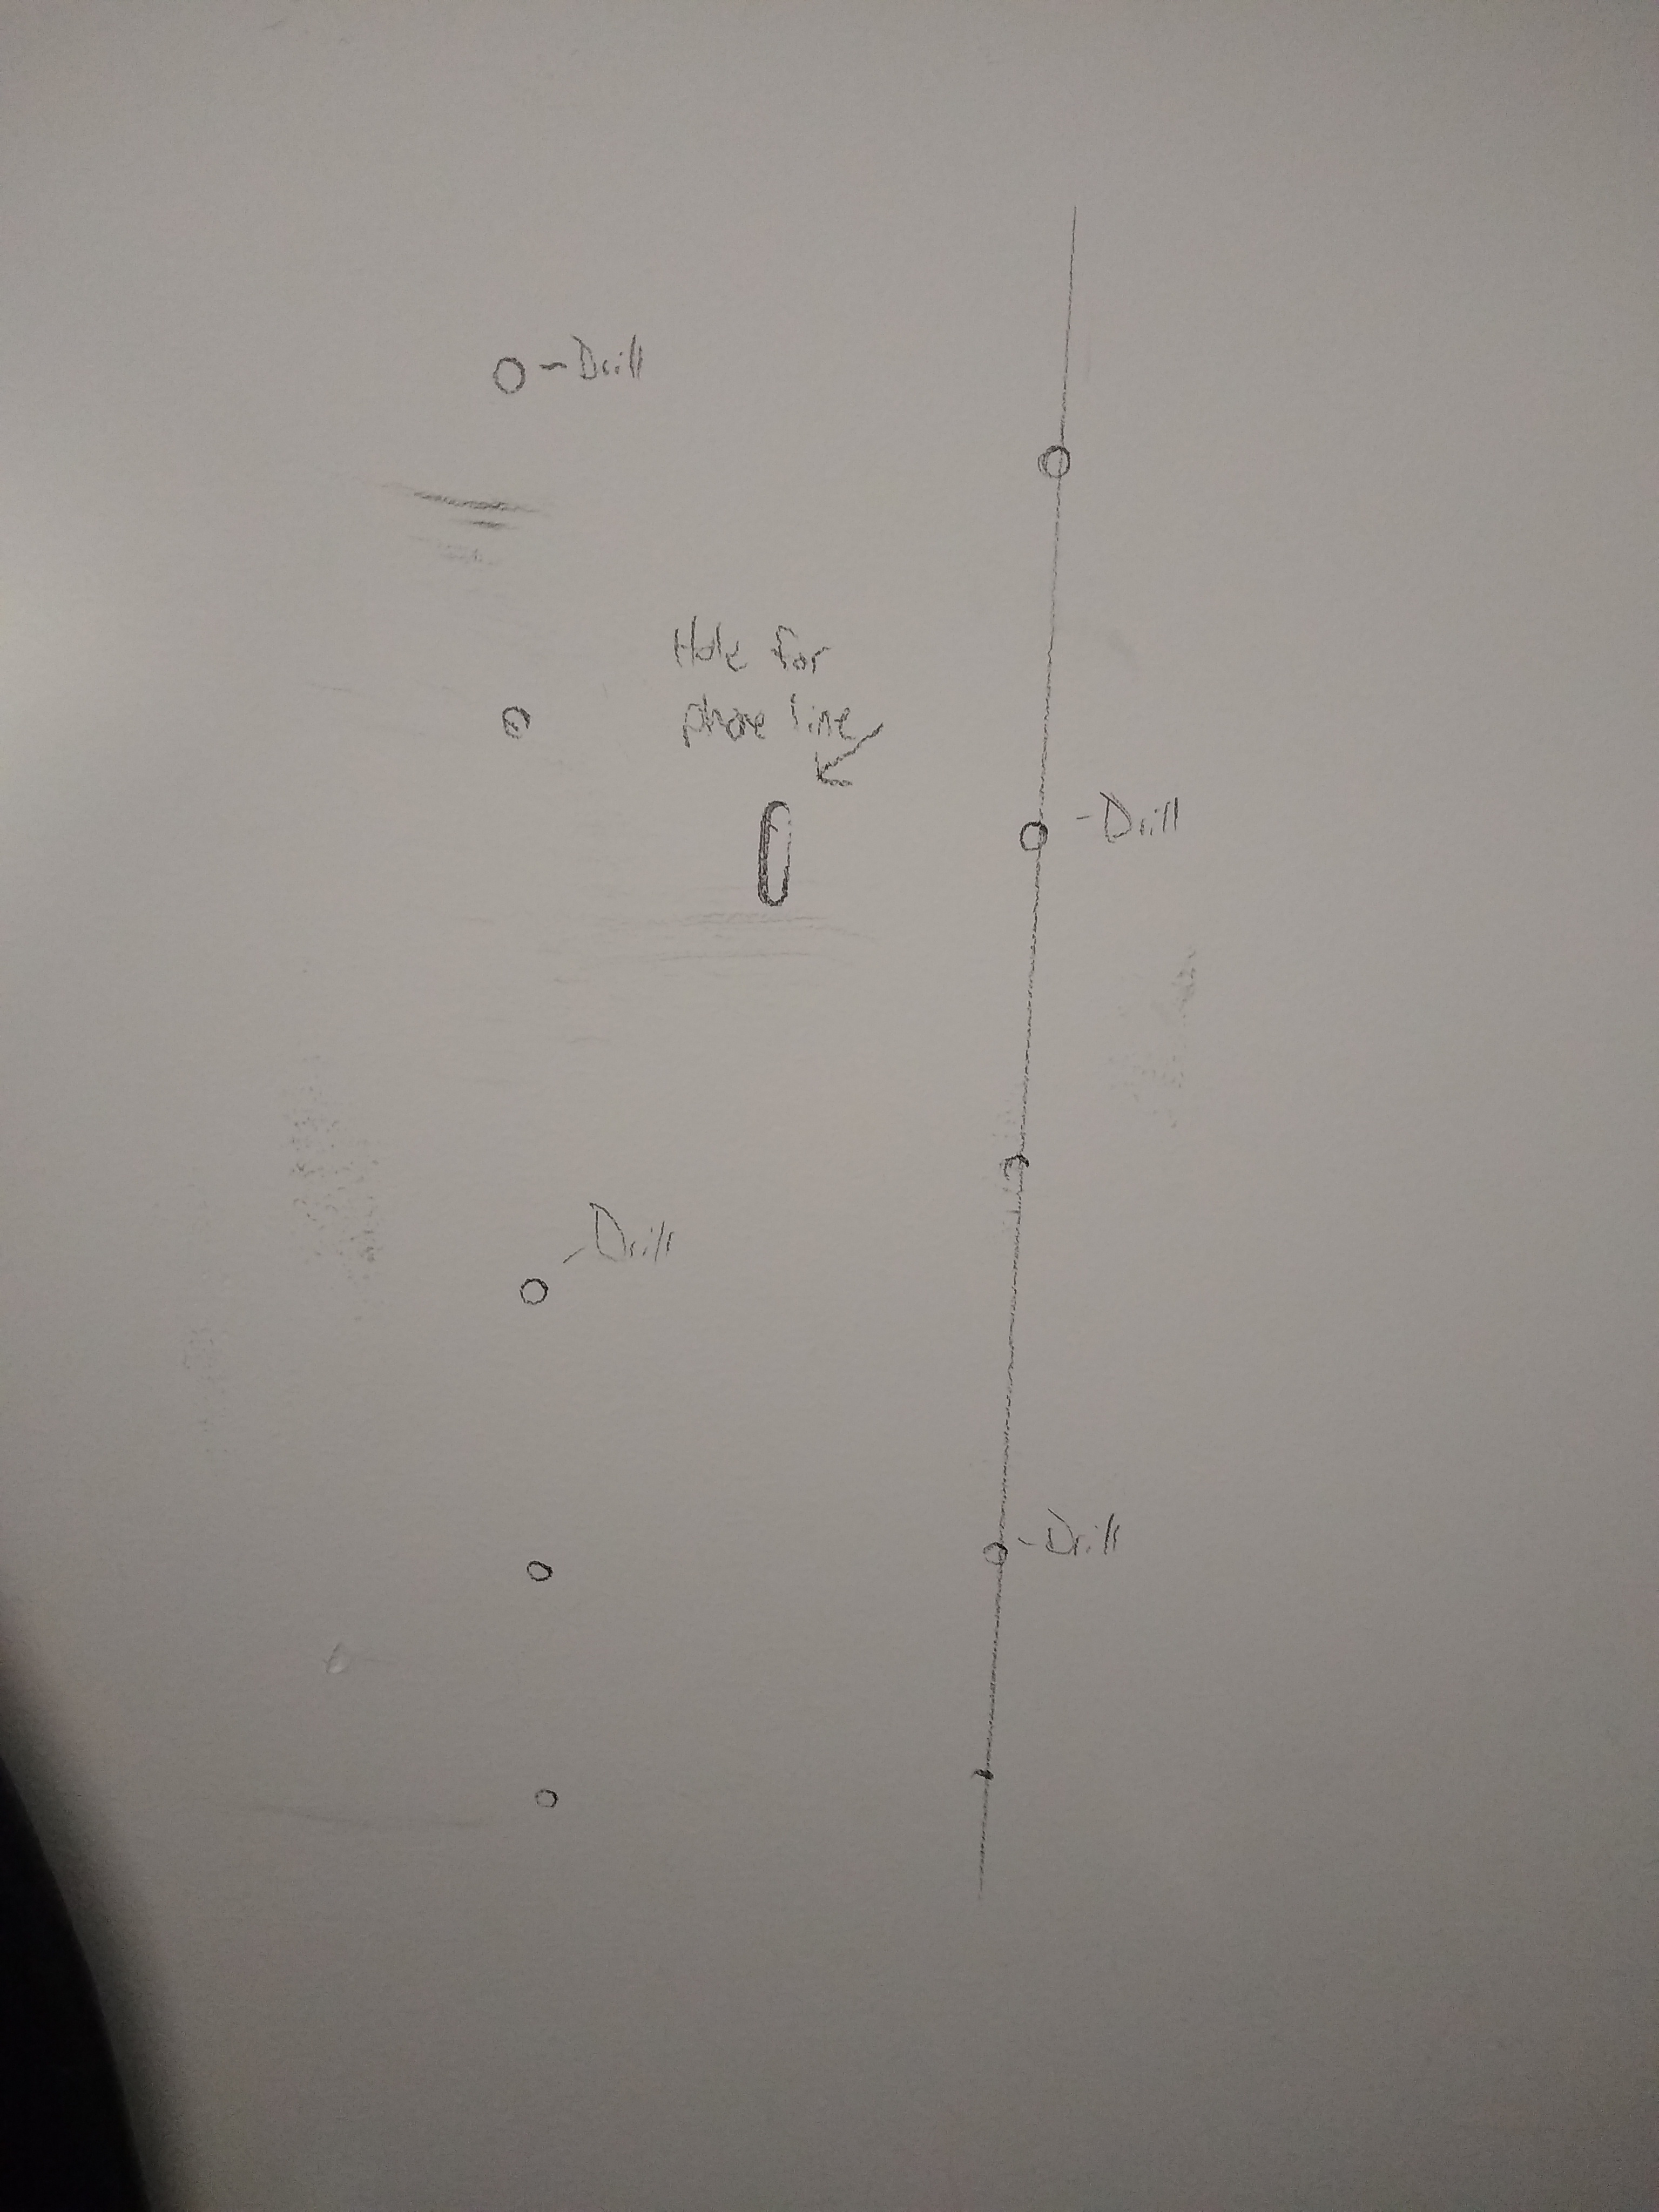 - Drill
Hole for
phone line
- Drill
- Drill
- Drill